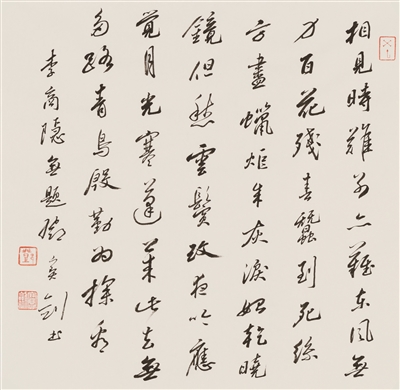 相見時難別亦難東風無
力百花殘春蠶到死絲
方盡蠟炬成灰淚始乾曉
鏡但愁雲鬢改夜吟應
覺月光寒蓬萊此去無
多路青鳥殷勤為探看
李商隱無題
劍書